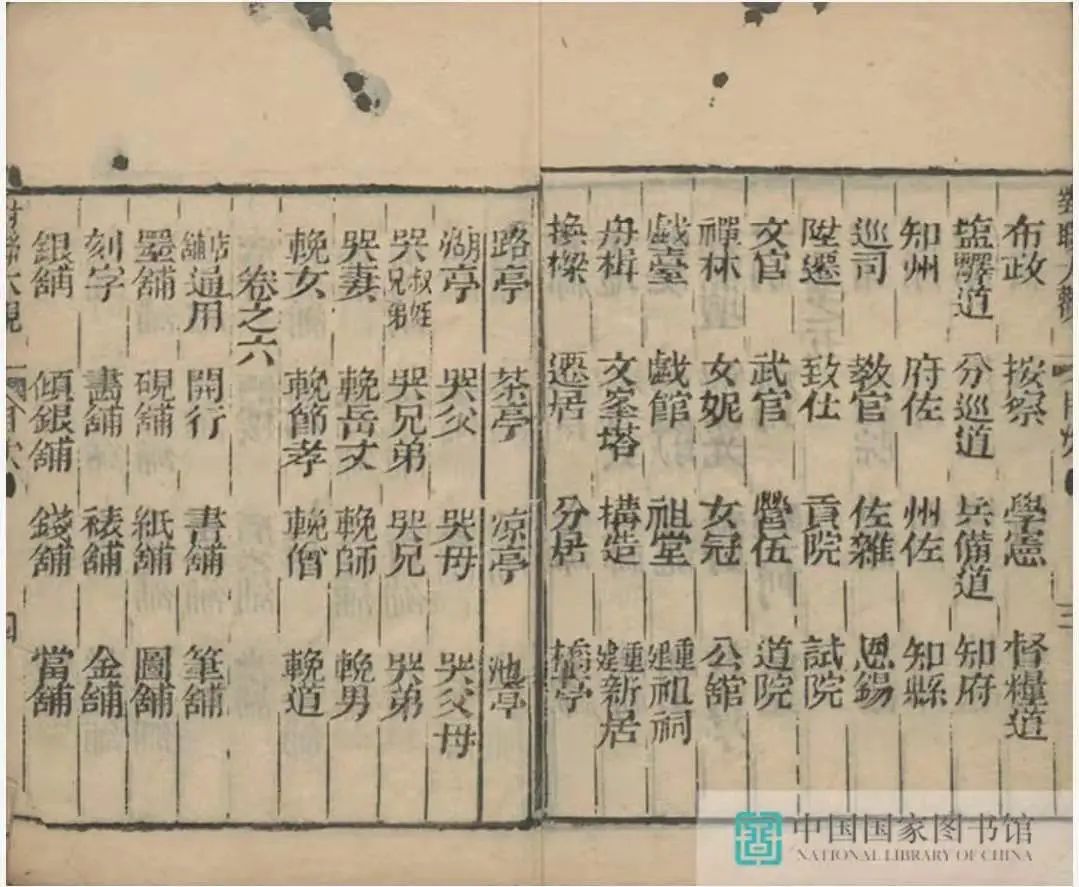 布政 按察 學憲 督糧道
塩驛道 分巡道 兵備道 知府
知州 府佐 州佐 知縣
巡司 教官 佐雜 恩錫
陞遷 致仕 貢院 試院
文官 武官 營伍 道院
禪林 女妮 女冠 公舘
戯臺 戯館 祖堂 重建祖祠
舟楫 文峯塔 構造 重建新居
換樑 遷居 分居 橋亭
路亭 茶亭 凉亭 池亭
湖亭 哭父 哭母 哭父母
哭叔姪兄弟 哭兄弟 哭兄 哭弟
哭妻 輓岳丈 輓師 輓男
輓女 輓節孝 輓僧 輓道
卷之六
店舖通用 開行 書舖 筆舖
墨舖 硯舖 紙舖 圖舖
刻字 畵舖 裱舖 金舖
銀舖 傾銀舖 錢舖 當舖
中国国家图书馆
NATIONAL LIBRARY OF CHINA